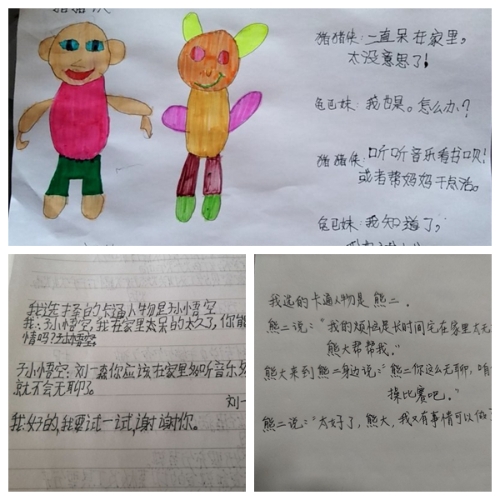 猪猪侠:一直呆在家里,
太没意思了!
我也是。怎么办?
猪猪侠:听听音乐看看书呗!
或者帮妈妈干点活。
我知道了,
我选择的卡通人物是孙小悟空
我:孙小悟空,我在家里太呆的太久了,你能
情吗?
孙小悟空:刘一森你应该在家里听音乐
就不会无聊了。
刘一
我:好的,我要试一试,谢谢你。
我选的卡通人物是熊二。
熊二说:“我的烦恼是长时间宅在家里太无
熊大帮帮我。”
熊大来到熊二身边说:“熊二你这么无聊,咱
操比赛吧。”
熊二说:“太好了,熊大,我又有事情可以做了